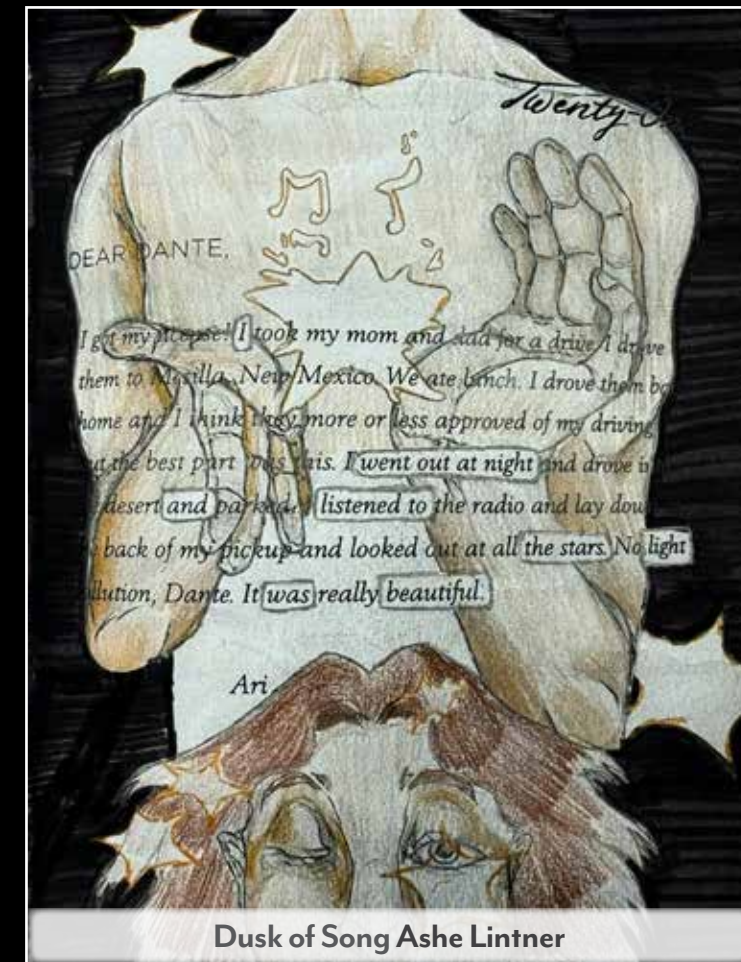 Twenty-
DEAR DANTE,
I got my license! I took my mom and dad for a drive. I drove
them to Mesilla, New Mexico. We ate lunch. I drove them
home and I think they more or less approved of my driving.
the best part was this. I went out at night and drove
desert and parked. I listened to the radio and lay
back of my pickup and looked out at all the stars. No light
Dante. It was really beautiful.
Ari
Dusk of Song Ashe Lintner